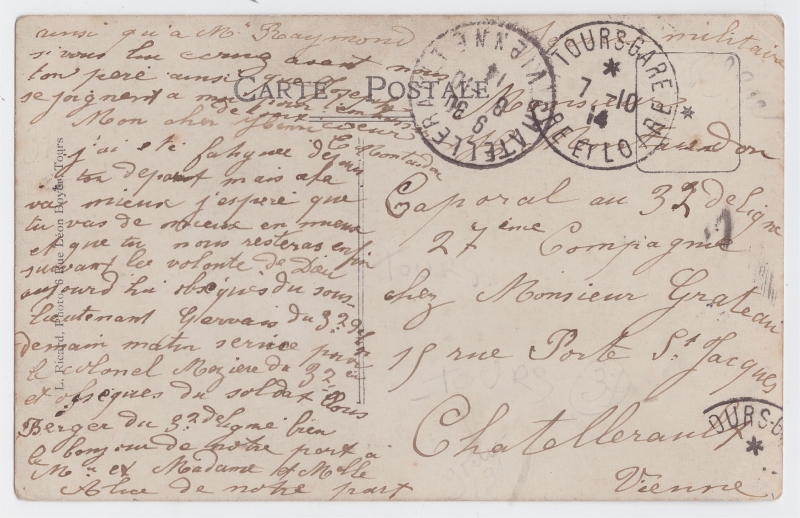 ainsi qu'à Mr Raymond
si vous lui écrivez avant nous
ton père ainsi que Joseph
se joignent à moi
Mon cher Henri
j'ai été fatiguée depuis
ton départ mais cela
va mieux j'espère que
tu vas de mieux en mieux
et que tu nous resteras enfin
suivant la volonté de Dieu
aujourd hui obsèques du sous
lieutenant Gervais du 32e de ligne
demain matin service pour
le colonel Mézière du 32e
et obsèques du soldat Louis
Berger du 32e de ligne bien
le bonjour de notre part à
Mr et Madame et Melle
Alice de notre part
CARTE POSTALE
militaire
Monsieur
Caporal au 32 de Ligne
27 ème Compagnie
chez Monsieur Grateau
15 rue Porte St Jacques
Chatellerault
Vienne
L. Ricard, Photo, 6 Rue Léon Boyer, Tours
CHATELLERAULT
VIENNE
TOURS-GARE
7 -10
14
INDRE ET LOIRE
TOURS-GA
TOURS